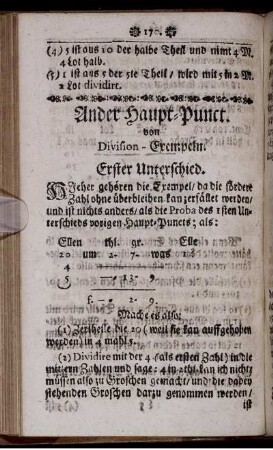 170.
(4.) 5 ist aus 10 der halbe Theil und nimt 4 M.
4 Lot halb.
(5.) 1 ist aus 5 der 5te Theil / wird mit 5 in 2 M.
2 Lot dividirt.
Ander Haupt-Punct.
von
Division-Exempeln.
Erster Unterschied.
HIeher gehören die Exempel / da die fördere
Zahl ohne überbleiben kan zerfället werden /
und ist nichts anders / als die Proba des 1sten Un-
terschieds vorigen Haupt-Puncts; als:
Ellen thl. gr. Elle
20 um 2. 7. was 1
4
5
f. 2. 9.
Mache es also:
(1) Zertheile die 20 (weil sie kan auffgehoben
werden) in 4 mahl 5.
(2) Dividire mit der 4 (als ersten Zahl) in die
mittern Zahlen und sage: 4 in 2 thl. kan ich nicht
müssen also zu Groschen gemacht / und die dabey
stehenden Groschen darzu genommen werden /
ist